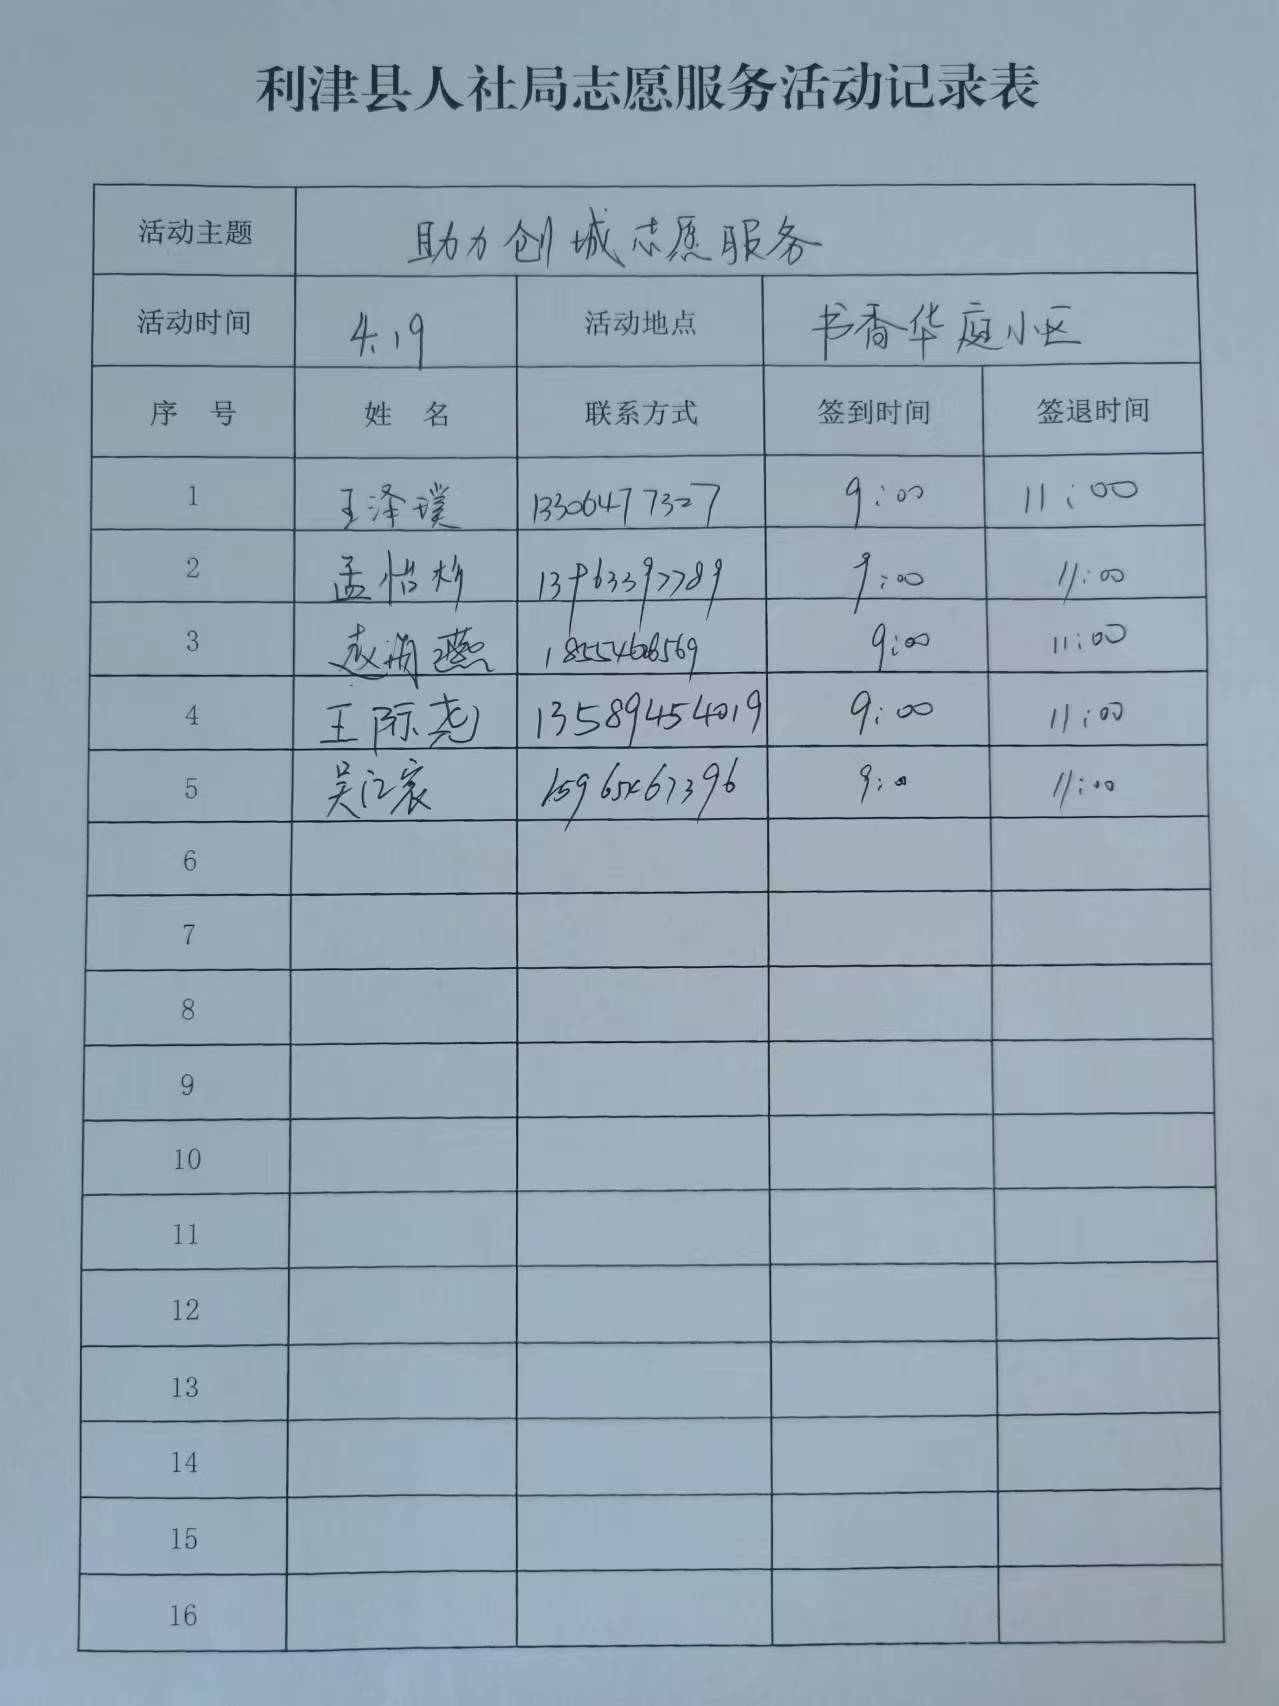 利津县人社局志愿服务活动记录表
活动主题 助力创城志愿服务
活动时间 4.19 活动地点 书香华庭小区
序 号 姓 名 联系方式 签到时间 签退时间
1 王泽璞 13306477327 9:00 11:00
2 孟怡杉 13963397789 9:00 11:00
3 赵 燕 9:00 11:00
4 王际尧 13589454019 9:00 11:00
5 吴江宸 15965467396 9:00 11:00
6
7
8
9
10
11
12
13
14
15
16